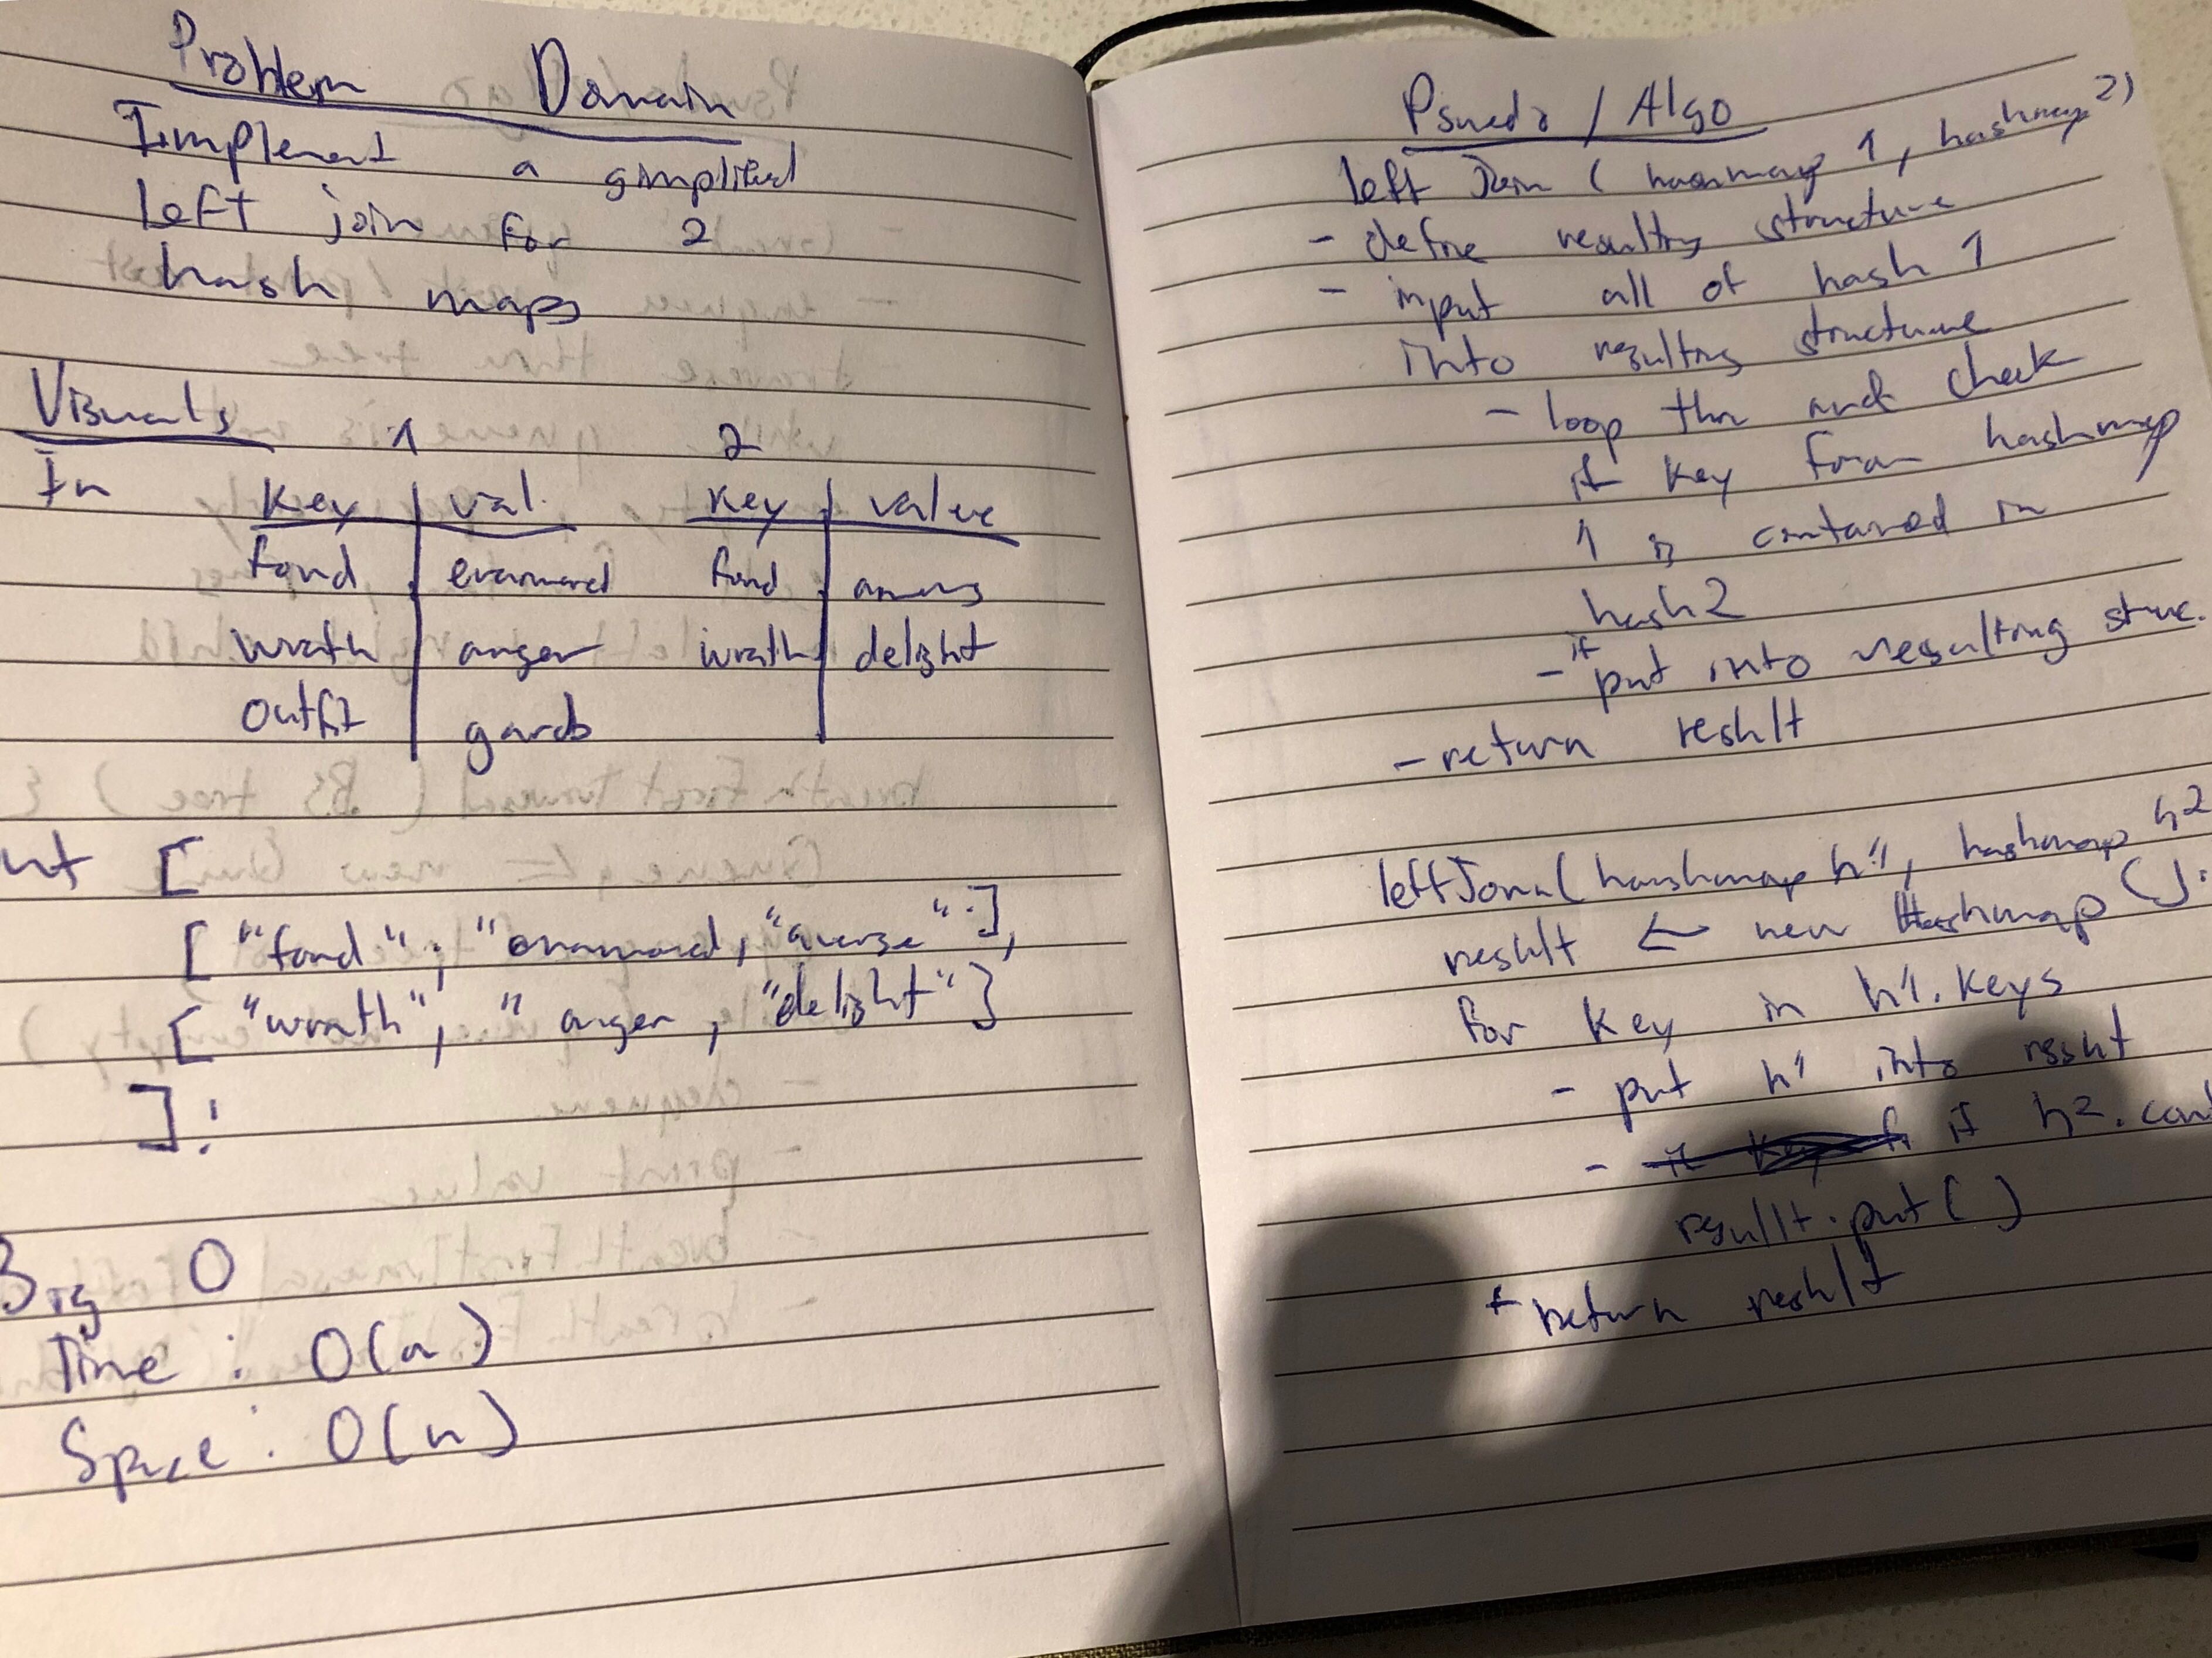 Problem Domain
Implement a simplified
left join for 2
hash maps
Visuals
1 2
In
key val. key value
fond enamored fond
wrath anger wrath delight
outfit garb
[
["fond", "enamored, "averse"],
["wrath", "anger, "delight"]
];
Big O
Time : O(n)
Space : O(n)
Psuedo / Algo
left Join (hashmap 1, hashmap 2)
- define resulting structure
- input all of hash 1
into resulting structure
- loop thru and check
if key from hashmap
1 is contained in
hash2
- if put into resulting struc.
- return result
leftJoin(hashmap h1, hashmap h2
result <- new Hashmap();
for key in h1.keys
- put h1 into result
- if h2.cont
result.put()
return result